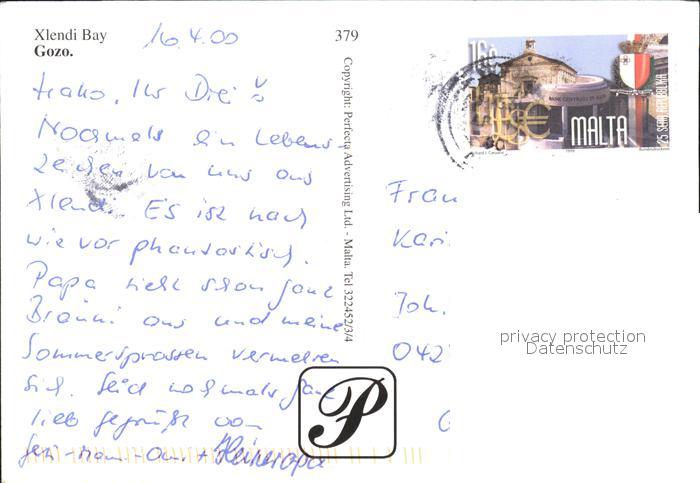 Xlendi Bay
Gozo.
16.4.00
379
Hallo, Ihr Drei!
Nochmals ein Lebens-
zeichen von uns aus
Xlendi. Es ist nach
wie vor phantastisch.
Papa sieht schon ganz
braun aus und meine
Sommersprossen vermehren
sich. Seid nochmals ganz
lieb gegrüßt von
Copyright: Perfecta Advertising Ltd. - Malta. Tel 322452/3/4
16c
MALTA
25 SENA REPUBBLIKA
BANK CENTRALI TA' MALTA
Frau
Kari
Joh.
042
privacy protection
Datenschutz
P